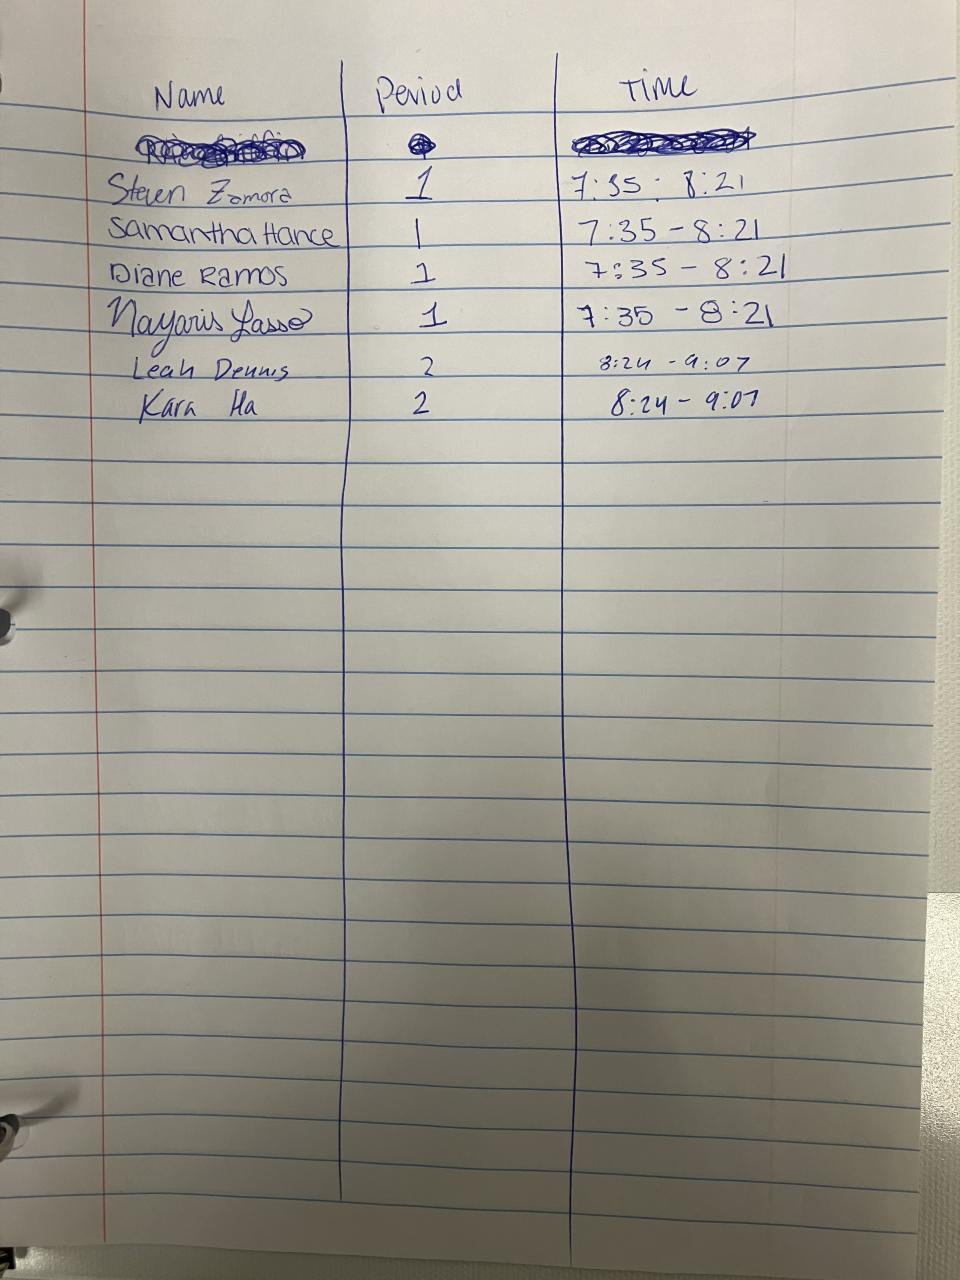 Name Period Time
Steven Zamora 1 7:35 : 8:21
Samantha Hance 1 7:35 - 8:21
Diane Ramos 1 7:35 - 8:21
Nayaris Lasso 1 7:35 - 8:21
Leah Dennis 2 8:24 - 9:07
Kara Ha 2 8:24 - 9:07